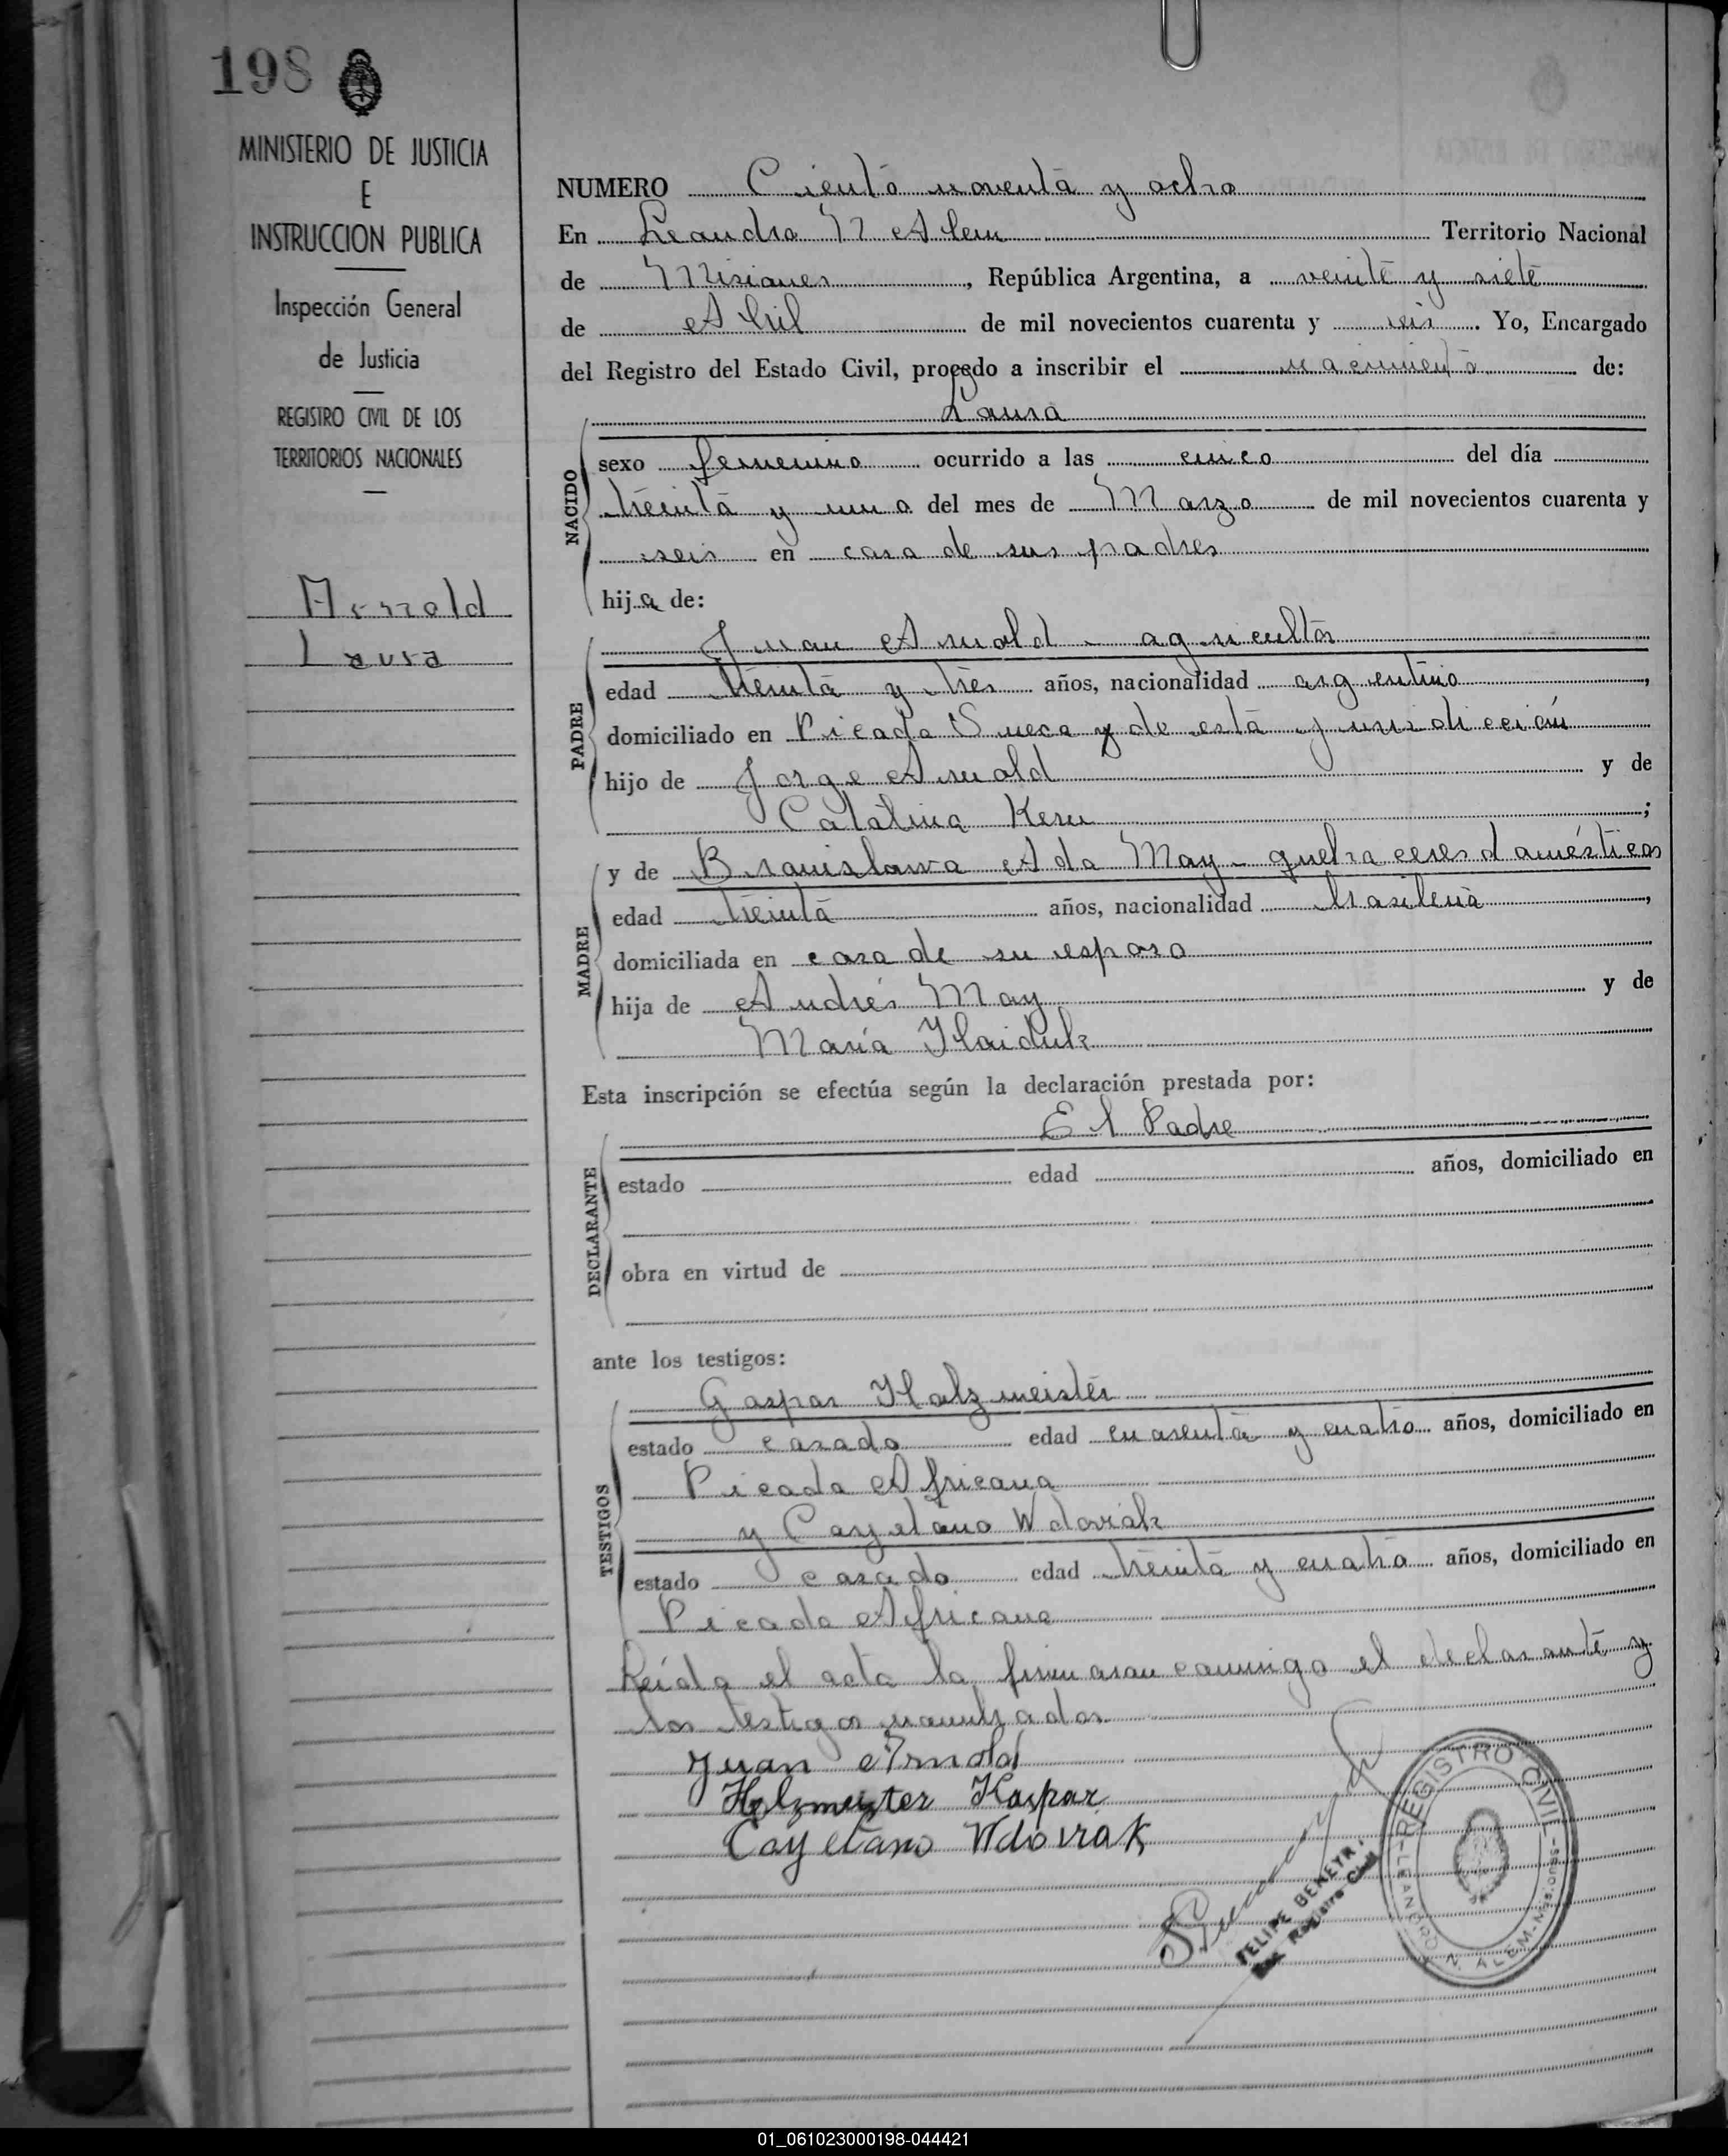 198
MINISTERIO DE JUSTICIA
E
INSTRUCCION PUBLICA
Inspección General
de Justicia
REGISTRO CIVIL DE LOS
TERRITORIOS NACIONALES
Arnold
Laura
NUMERO Ciento noventa y ocho
En Leandro N Alem Territorio Nacional
de Misiones, República Argentina, a veinte y siete
de Abril de mil novecientos cuarenta y seis. Yo, Encargado
del Registro del Estado Civil, procedo a inscribir el nacimiento de:
Laura
NACIDO
sexo femenino ocurrido a las cinco del día
treinta y uno del mes de Marzo de mil novecientos cuarenta y
seis en casa de sus padres
hija de:
PADRE
Juan Arnold - agricultor
edad treinta y tres años, nacionalidad argentino,
domiciliado en Picada Sueca y de esta jurisdicción
hijo de Jorge Arnold y de
Catalina Kern;
MADRE
y de Branislava Ada May - quehaceres domésticos
edad treinta años, nacionalidad brasilera,
domiciliada en casa de su esposo
hija de Andrés May y de
María Haiduk
Esta inscripción se efectúa según la declaración prestada por:
DECLARANTE
El Padre
estado edad años, domiciliado en
obra en virtud de
ante los testigos:
TESTIGOS
Gaspar Holzmeister
estado casado edad cuarenta y cuatro años, domiciliado en
Picada Africana
y Cayetano Wdoviak
estado casado edad treinta y cuatro años, domiciliado en
Picada Africana
Leída el acta la firmaron conmigo el declarante y
los testigos nombrados.
Juan Arnold
Holzmeister Kaspar
Cayetano Wdoviak
FELIPE BENEYR
Enc. Registro Civil
REGISTRO CIVIL
LEANDRO N. ALEM - Misiones
01_061023000198-044421